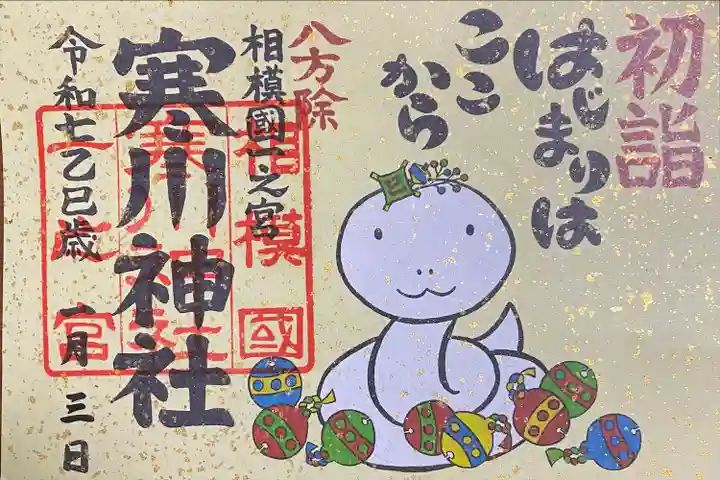 初詣
はじまりは
ここ
から
八方除
相模國一之宮
寒川神社
令和七乙巳歳 一月三日
相模國
寒川神社
一之宮